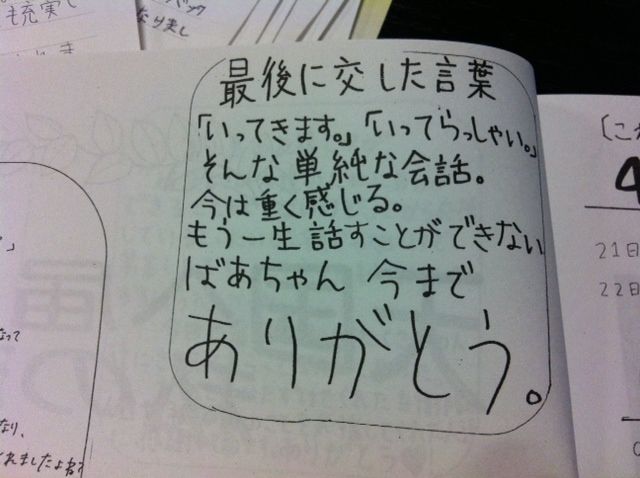 も充実し
なりまし
最後に交した言葉
「いってきます。」「いってらっしゃい。」
そんな単純な会話。
今は重く感じる。
もう一生話すことができない
ばあちゃん 今まで
ありがとう。
なって
なり、
くれましたよね?
(これ
4
21日
22日